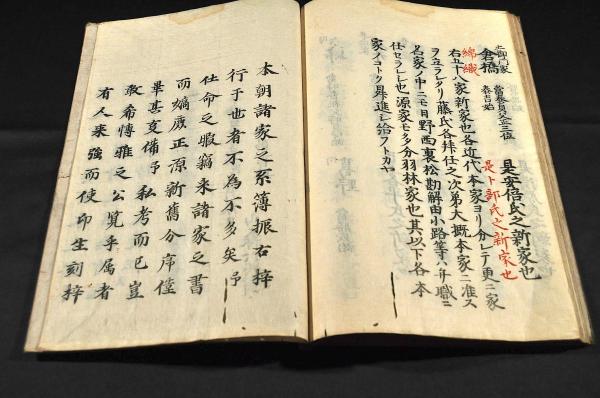 土御門家
倉橋 當務員父正三位
泰吉始
是安倍氏之新家也
錦織
是卜部氏之新家也
右五十八家新家也各近代本家ヨリ分レテ更ニ家
ヲ立ラレタリ藤氏各拝任之次第大概本家ニ准ス
名家ノ中ニモ日野西裏松勘解由小路等ハ弁職ニ
任セラレ也源家モ多分羽林家也其以下各本
家ノコトク昇進シ給フトカヤ
本朝諸家之系簿振右梓
行于世者不為不多矣予
仕命之暇竊来諸家之書
而嫡庶正源新舊分序僅
畢甚支備予私考而已豈
敢希博雅之公覧乎属者
有人来強而使印生刻梓